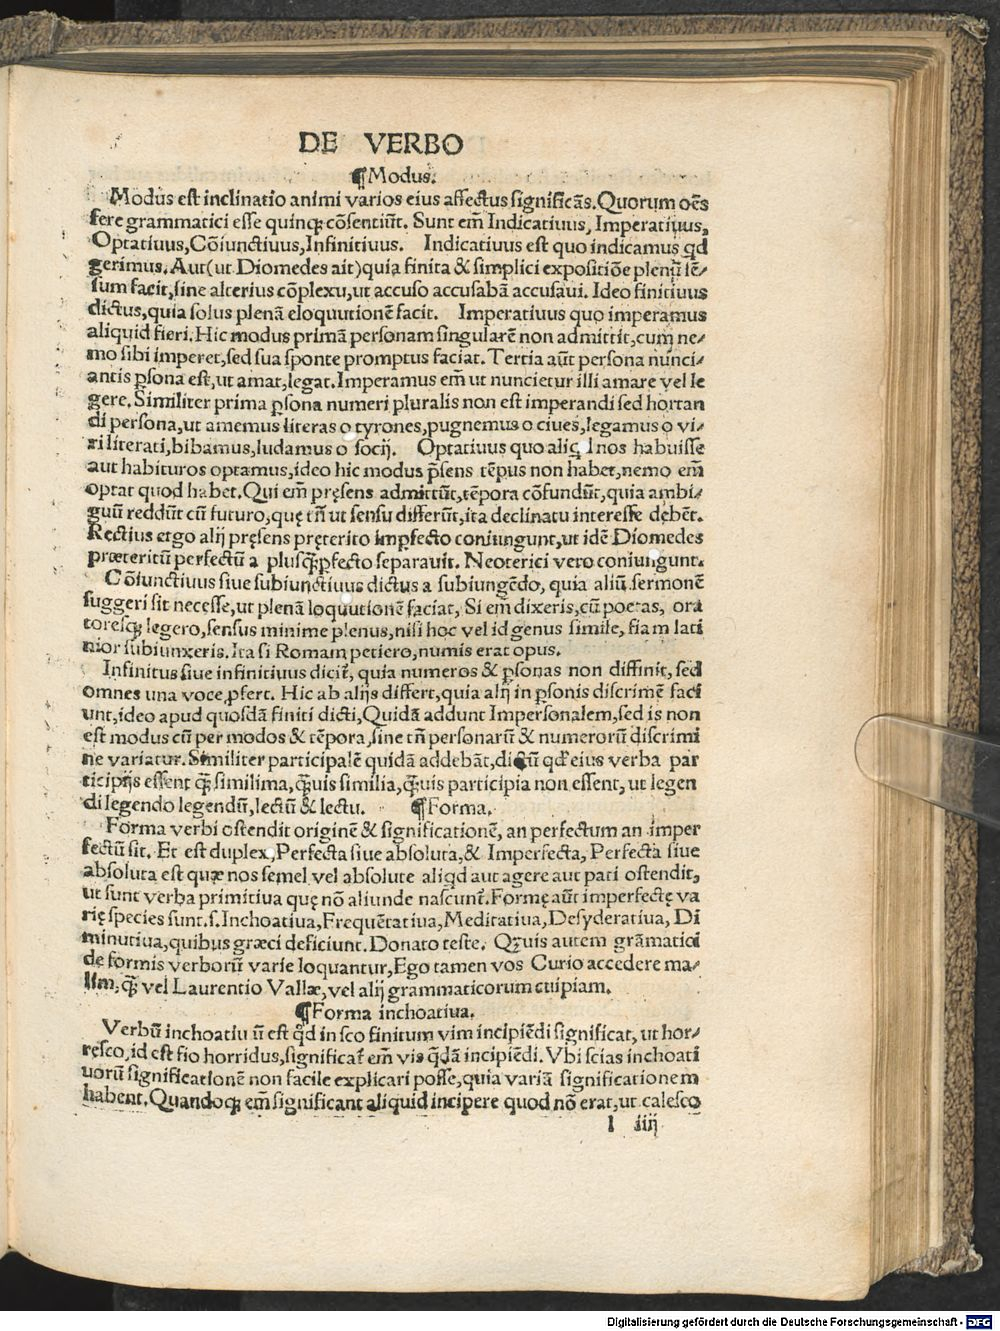 DE VERBO
¶Modus.
Modus est inclinatio animi varios eius affectus significās. Quorum oēs
fere grammatici esse quinqȝ cōsentiūt. Sunt em̄ Indicatiuus, Imperatiuus,
Optatiuus, Cōiunctiuus, Infinitiuus. Indicatiuus est quo indicamus qd
gerimus. Aut (ut Diomedes ait) quia finita & simplici expositiōe plenū sē⸗
sum facit, sine alterius cōplexu, ut accuso accusabā accusaui. Ideo finitiuus
dictus, quia solus plenā eloquutionē facit. Imperatiuus quo imperamus
aliquid fieri. Hic modus primā personam singularē non admittit, cum ne⸗
mo sibi imperet, sed sua sponte promptus faciat. Tertia aūt persona nunci⸗
antis ꝑsona est, ut amat, legat. Imperamus em̄ ut nuncietur illi amare vel le
gere. Similiter prima ꝑsona numeri pluralis non est imperandi sed hortan
di persona, ut amemus literas o tyrones, pugnemus o ciues, legamus o vi⸗
ri literati, bibamus, ludamus o socij. Optatiuus quo aliqd nos habuisse
aut habituros optamus, ideo hic modus p̄sens tēpus non habet, nemo em̄
optat quod habet. Qui em̄ pręsens admittūt, tēpora cōfundūt, quia ambi⸗
guū reddūt cū futuro, quę tn̄ ut sensu differūt, ita declinatu interesse dębēt.
Rectius ergo alij pręsens pręterito imꝑfecto coniungunt, ut idē Diomedes
præteritū perfectū a plusqȝꝑfecto separauit. Neoterici vero coniungunt.
Cōiunctiuus siue subiunctiuus dictus a subiungēdo, quia aliū sermonē
suggeri sit necesse, ut plenā loquutionē faciat, Si em̄ dixeris, cū poetas, ora
toresqȝ legero, sensus minime plenus, nisi hoc vel id genus simile, fiam lati
nior subiunxeris. Ita si Romam petiero, numis erat opus.
Infinitus siue infinitiuus dicit᷑, quia numeros & ꝑsonas non diffinit, sed
omnes una voce ꝓfert. Hic ab alijs differt, quia alij in ꝑsonis discrimē faci
unt, ideo apud quosdā finiti dicti, Quidā addunt Impersonalem, sed is non
est modus cū per modos & tēpora, sine tn̄ personarū & numerorū discrimi
ne variatur. Similiter participalē quidā addebāt, dictū qđ eius verba par
ticipijs essent qȝ similima, qȝuis similia, qȝuis participia non essent, ut legen
di legendo legendū, lectū & lectu. ¶Forma.
Forma verbi ostendit originē & significationē, an perfectum an imper
fectū sit. Et est duplex, Perfecta siue absoluta, & Imperfecta, Perfecta siue
absoluta est quæ nos semel vel absolute aliqd aut agere aut pati ostendit,
ut sunt verba primitiua quę nō aliunde nascunt᷑. Formę aūt imperfectę va
rię species sunt .s. Inchoatiua, Frequētatiua, Meditatiua, Desyderatiua, Di
minutiua, quibus græci deficiunt. Donato teste. Qȝuis autem grāmatici
de formis verborū varie loquantur, Ego tamen vos Curio accedere ma⸗
lim, qȝ vel Laurentio Vallæ, vel alij grammaticorum cuipiam.
¶Forma inchoatiua.
Verbū inchoatiuū est qd in sco finitum vim incipiēdi significat, ut hor⸗
resco, id est fio horridus, significat᷑ em̄ vis q̄dā incipiēdi. Vbi scias inchoati
uorū significationē non facile explicari posse, quia variā significationem
habent. Quandoqȝ em̄ significant aliquid incipere quod nō erat, ut calesco
l iiij
Digitalisierung gefördert durch die Deutsche Forschungsgemeinschaft - DFG